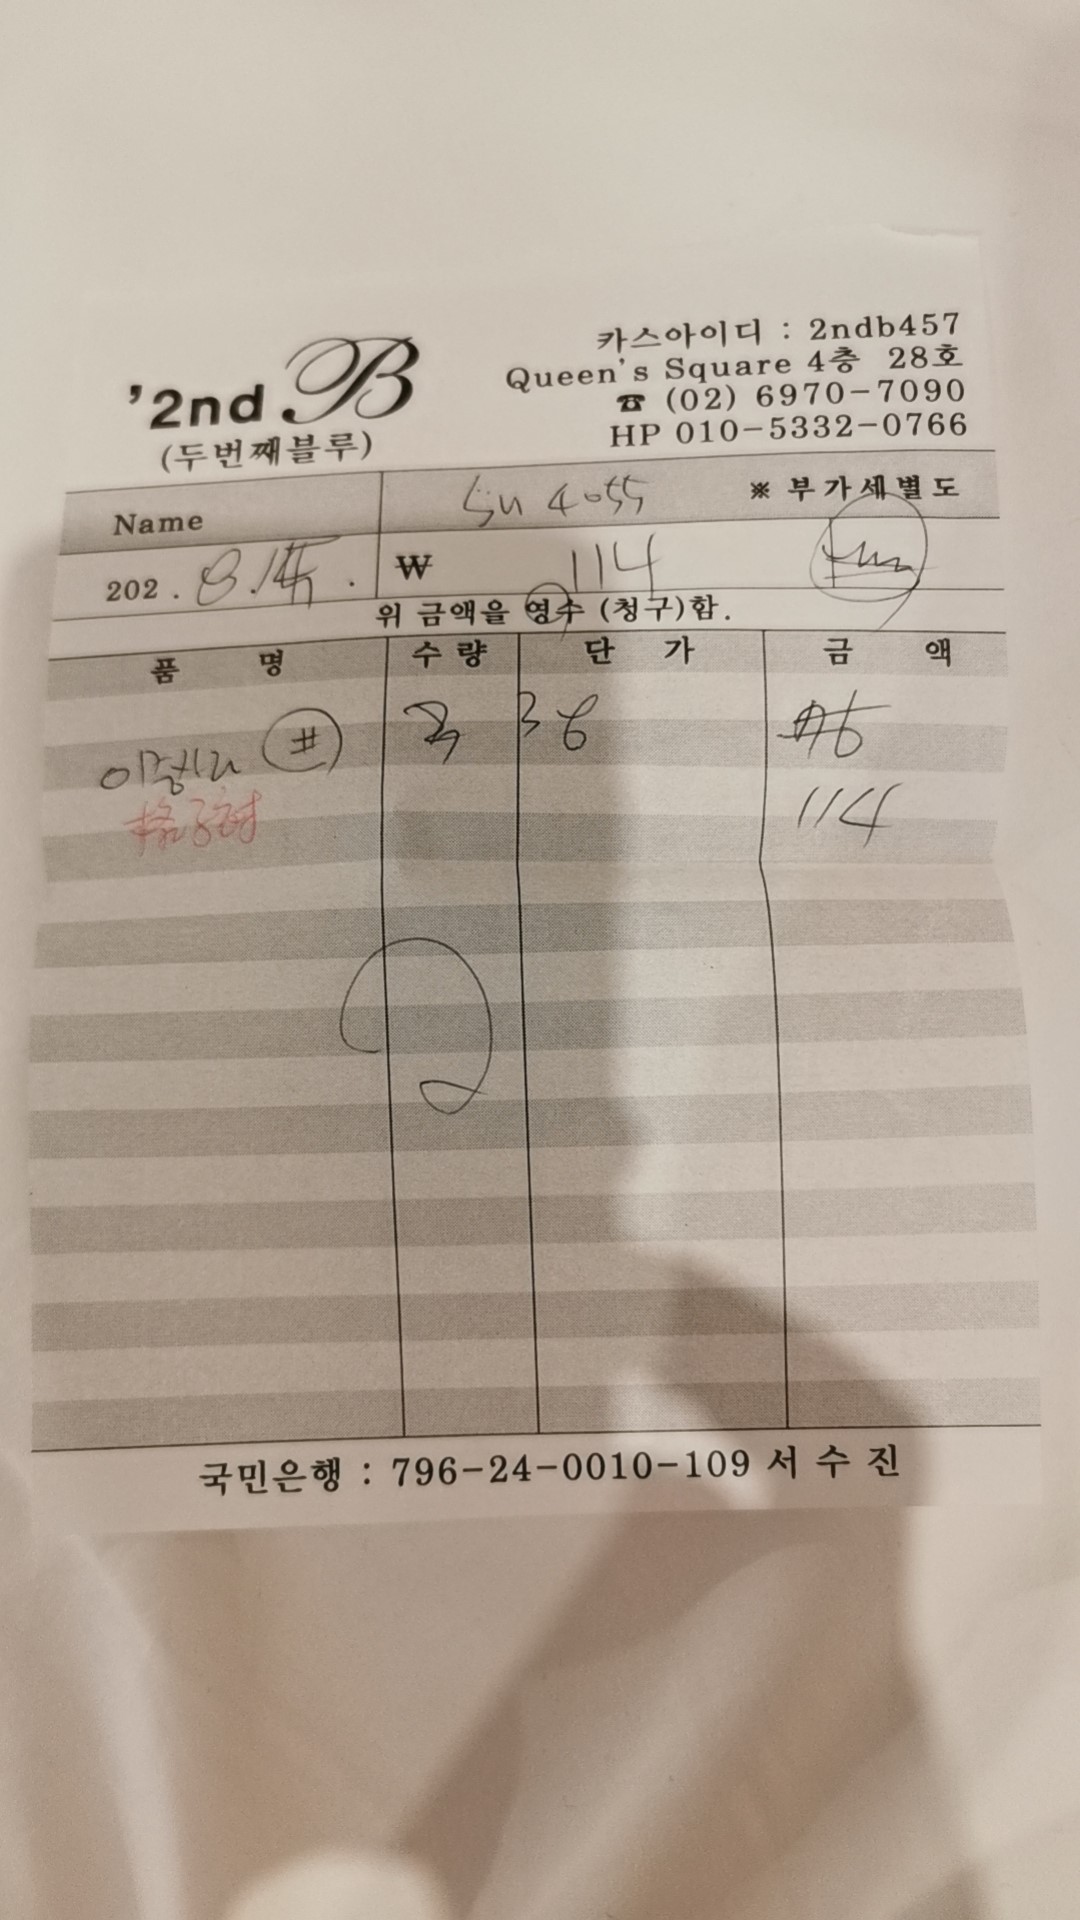 '2nd B
(두번째블루)
카스아이디 : 2ndb457
Queen's Square 4층 28호
☎ (02) 6970-7090
HP 010-5332-0766
Name
※ 부가세별도
202 . 8.
₩ 114
위 금액을 영수 (청구)함.
품 명 수 량 단 가 금 액
#
114
국민은행 : 796-24-0010-109 서 수 진